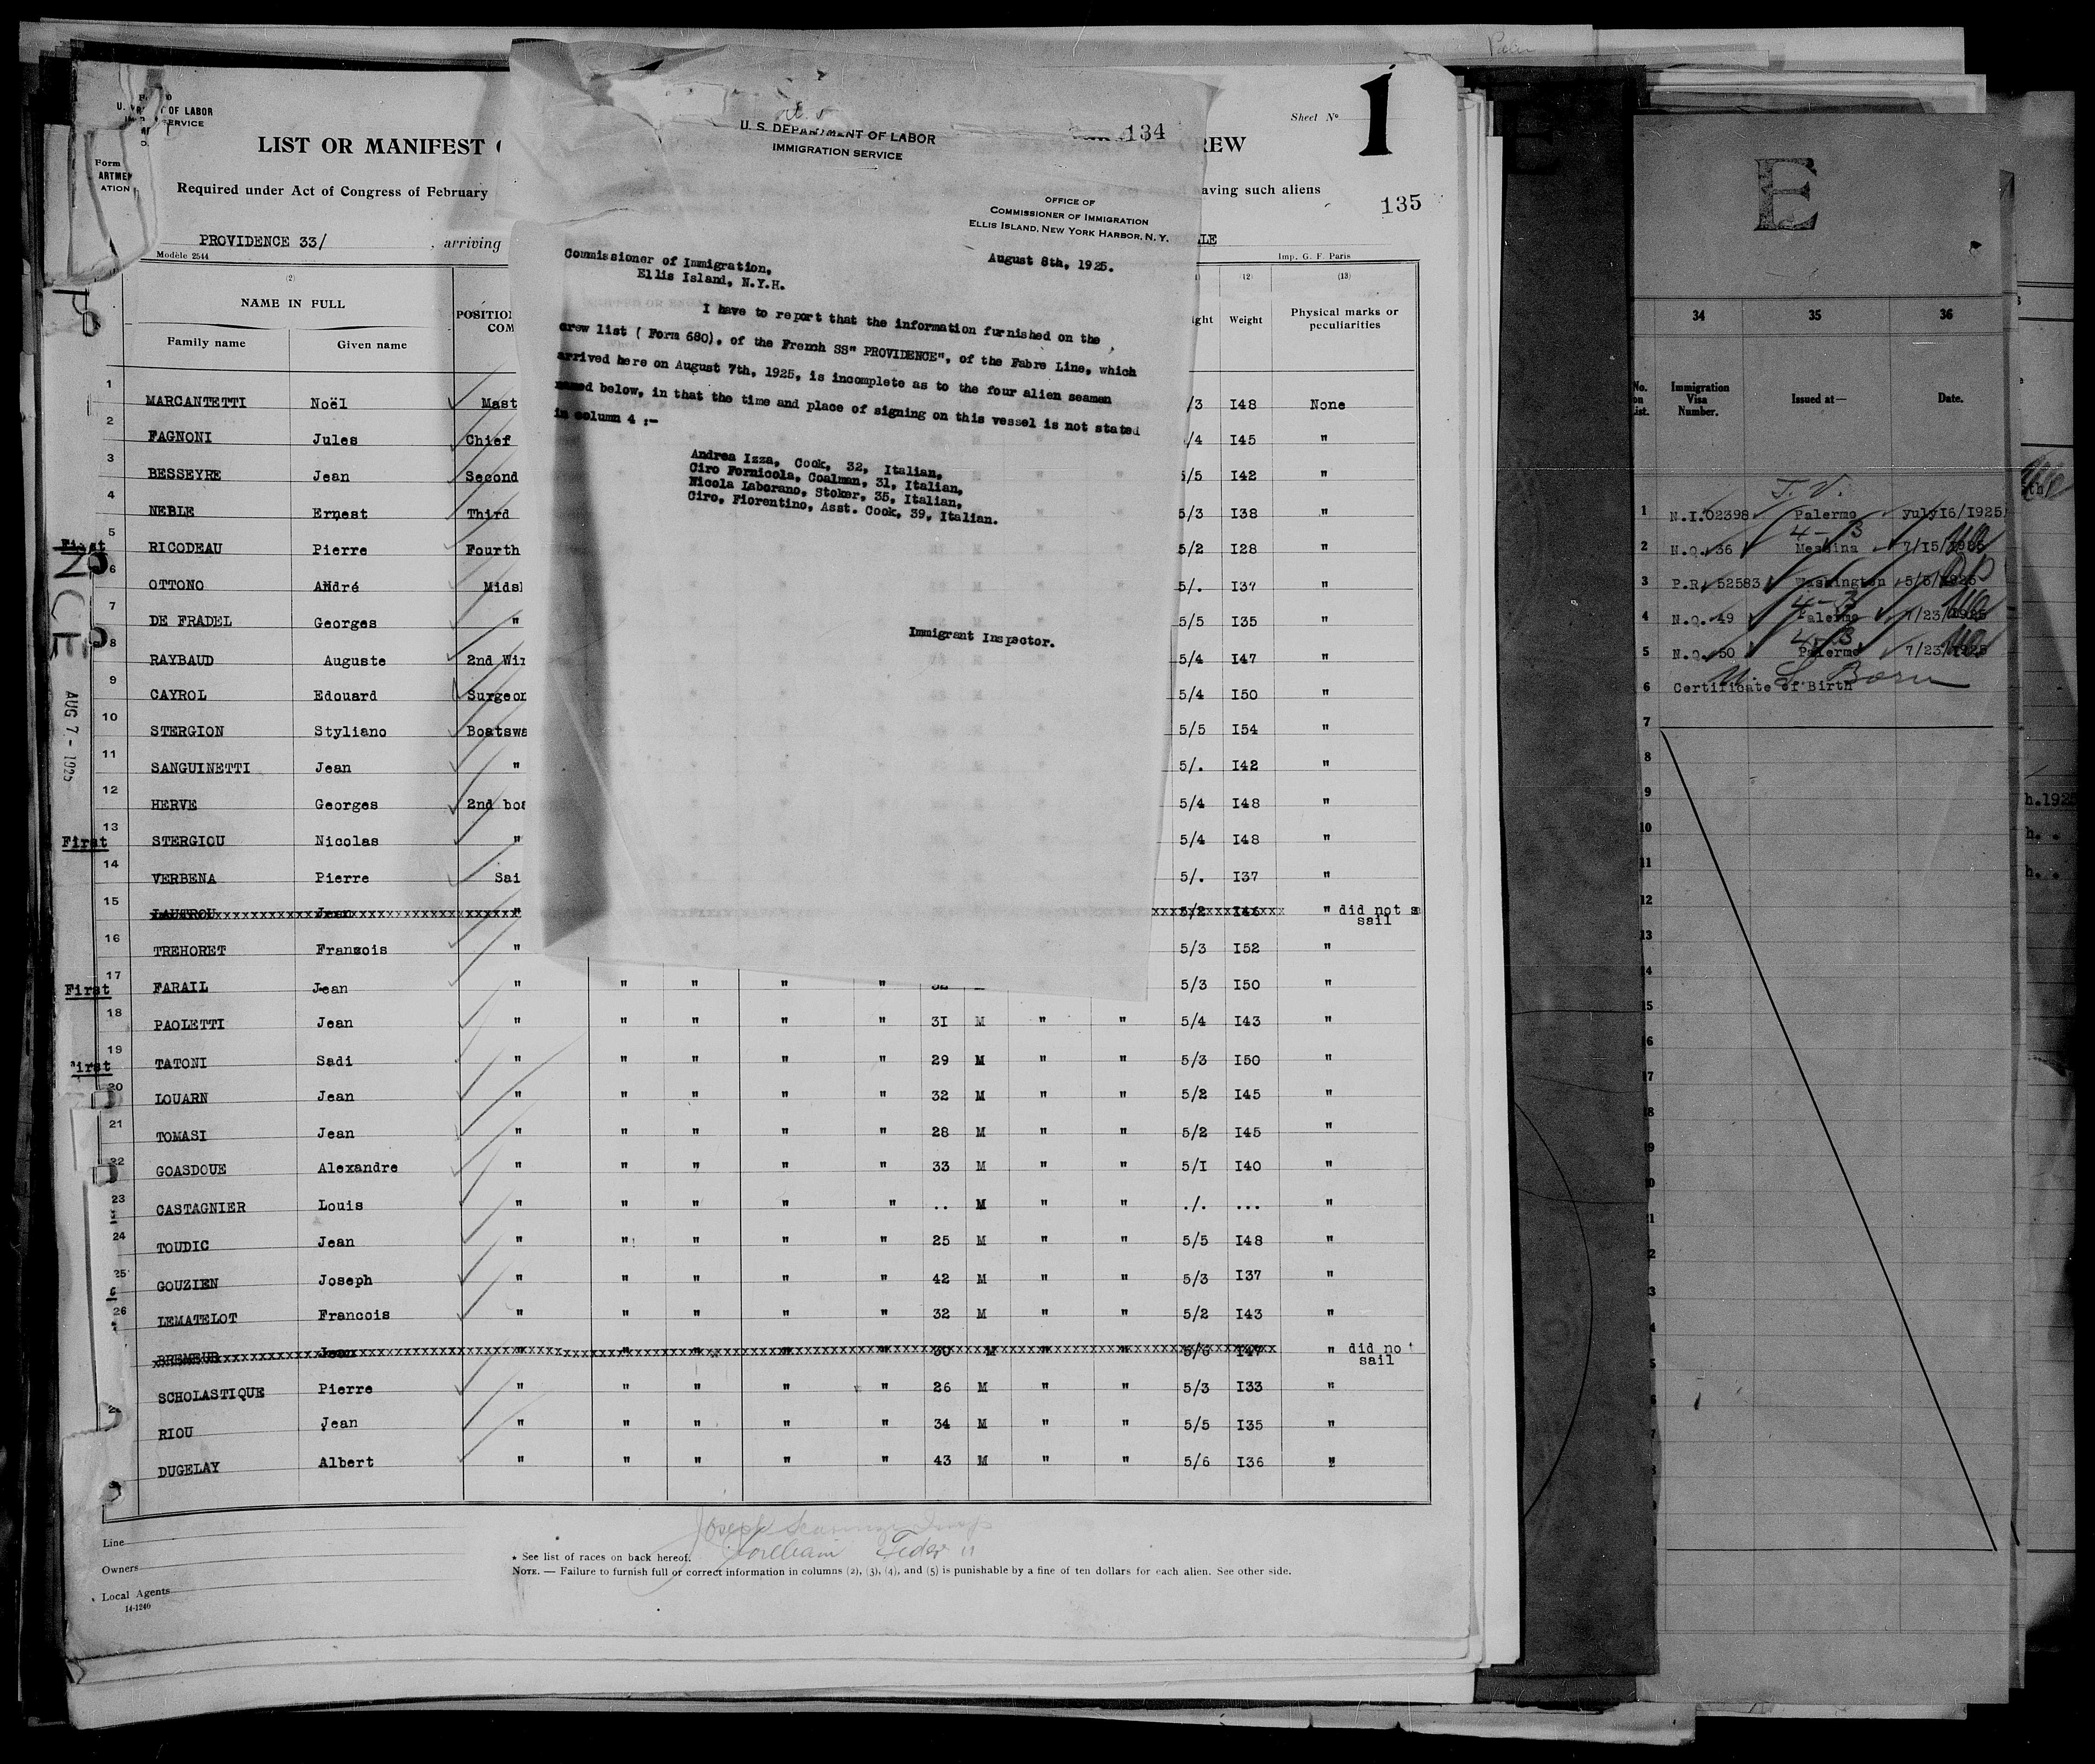 U. S. DEPARTMENT OF LABOR
IMMIGRATION SERVICE
134
OFFICE OF
COMMISSIONER OF IMMIGRATION
ELLIS ISLAND, NEW YORK HARBOR, N. Y.
August 8th, 1925.
Commissioner of Immigration,
Ellis Island, N.Y.H.
I have to report that the information furnished on the
crew list ( Form 680), of the French SS" PROVIDENCE", of the Fabre Line, which
arrived here on August 7th, 1925, is incomplete as to the four alien seamen
named below, in that the time and place of signing on this vessel is not stated
in column 4 :-
Andrea Izza, Cook, 32, Italian,
Ciro Fornicola, Coalman, 31, Italian,
Nicola Laborano, Stoker, 35, Italian,
Ciro, Fiorentino, Asst. Cook, 39, Italian.
Immigrant Inspector.
U. OF LABOR
SERVICE
Form
ATION
LIST OR MANIFEST
REW
Sheet No 1
Required under Act of Congress of February
aving such aliens
135
PROVIDENCE 33/ , arriving
LLE
Modèle 2544
Imp. G. F. Paris
(2) (12) (13)
NAME IN FULL
POSITION
COM
ight Weight Physical marks or
peculiarities
Family name Given name
1 MARCANTETTI Noël Mast /3 I48 None
2 FAGNONI Jules Chief /4 I45 "
3 BESSEYRE Jean Second 5/5 I42 "
4 NEBLE Ernest Third 5/3 I38 "
First 5 RICODEAU Pierre Fourth 5/2 I28 "
6 OTTONO André Mids 5/. I37 "
7 DE FRADEL Georges " 5/5 I35 "
8 RAYBAUD Auguste 2nd Wir 5/4 I47 "
9 CAYROL Edouard Surgeon 5/4 I50 "
10 STERGION Styliano Boatswa 5/5 I54 "
11 SANGUINETTI Jean " 5/. I42 "
12 HERVE Georges 2nd boa 5/4 I48 "
First 13 STERGIOU Nicolas " 5/4 I48 "
14 VERBENA Pierre Sai 5/. I37 "
15 LAUTROU Jean " 5/2 I46 " did not
sail
16 TREHORET Fransois " 5/3 I52 "
First 17 FARAIL Jean " " " " " 5/3 I50 "
18 PAOLETTI Jean " " " " " 31 M " " 5/4 I43 "
irst 19 TATONI Sadi " " " " " 29 M " " 5/3 I50 "
20 LOUARN Jean " " " " " 32 M " " 5/2 I45 "
21 TOMASI Jean " " " " " 28 M " " 5/2 I45 "
22 GOASDOUE Alexandre " " " " " 33 M " " 5/I I40 "
23 CASTAGNIER Louis " " " " " .. M " " ./. ... "
24 TOUDIC Jean " " " " " 25 M " " 5/5 I48 "
25 GOUZIEN Joseph " " " " " 42 M " " 5/3 I37 "
26 LEMATELOT Francois " " " " " 32 M " " 5/2 I43 "
BREMEUR Jean " " " " " 30 M " " 5/6 I47 " did no
sail
SCHOLASTIQUE Pierre " " " " " 26 M " " 5/3 I33 "
RIOU Jean " " " " " 34 M " " 5/5 I35 "
DUGELAY Albert " " " " " 43 M " " 5/6 I36 "
AUG 7 - 1925
Line
Owners
Local Agents
14-1240
* See list of races on back hereof.
NOTE. — Failure to furnish full or correct information in columns (2), (3), (4), and (5) is punishable by a fine of ten dollars for each alien. See other side.
E
34 35 36
No.
on
List.
Immigration
Visa
Number.
Issued at—
Date.
1 N.I.02398 Palermo July I6/I925
2 N.Q. 36 Messina 7/I5/1925
3 P.R. 52583 Washington 5/5/1925
4 N.Q. 49 Palermo 7/23/1925
5 N.Q. 50 Palermo 7/23/1925
6 Certificate of Birth U. S. Born
7
8
9
10
11
12
13
14
15
h.192
h. .
h. .